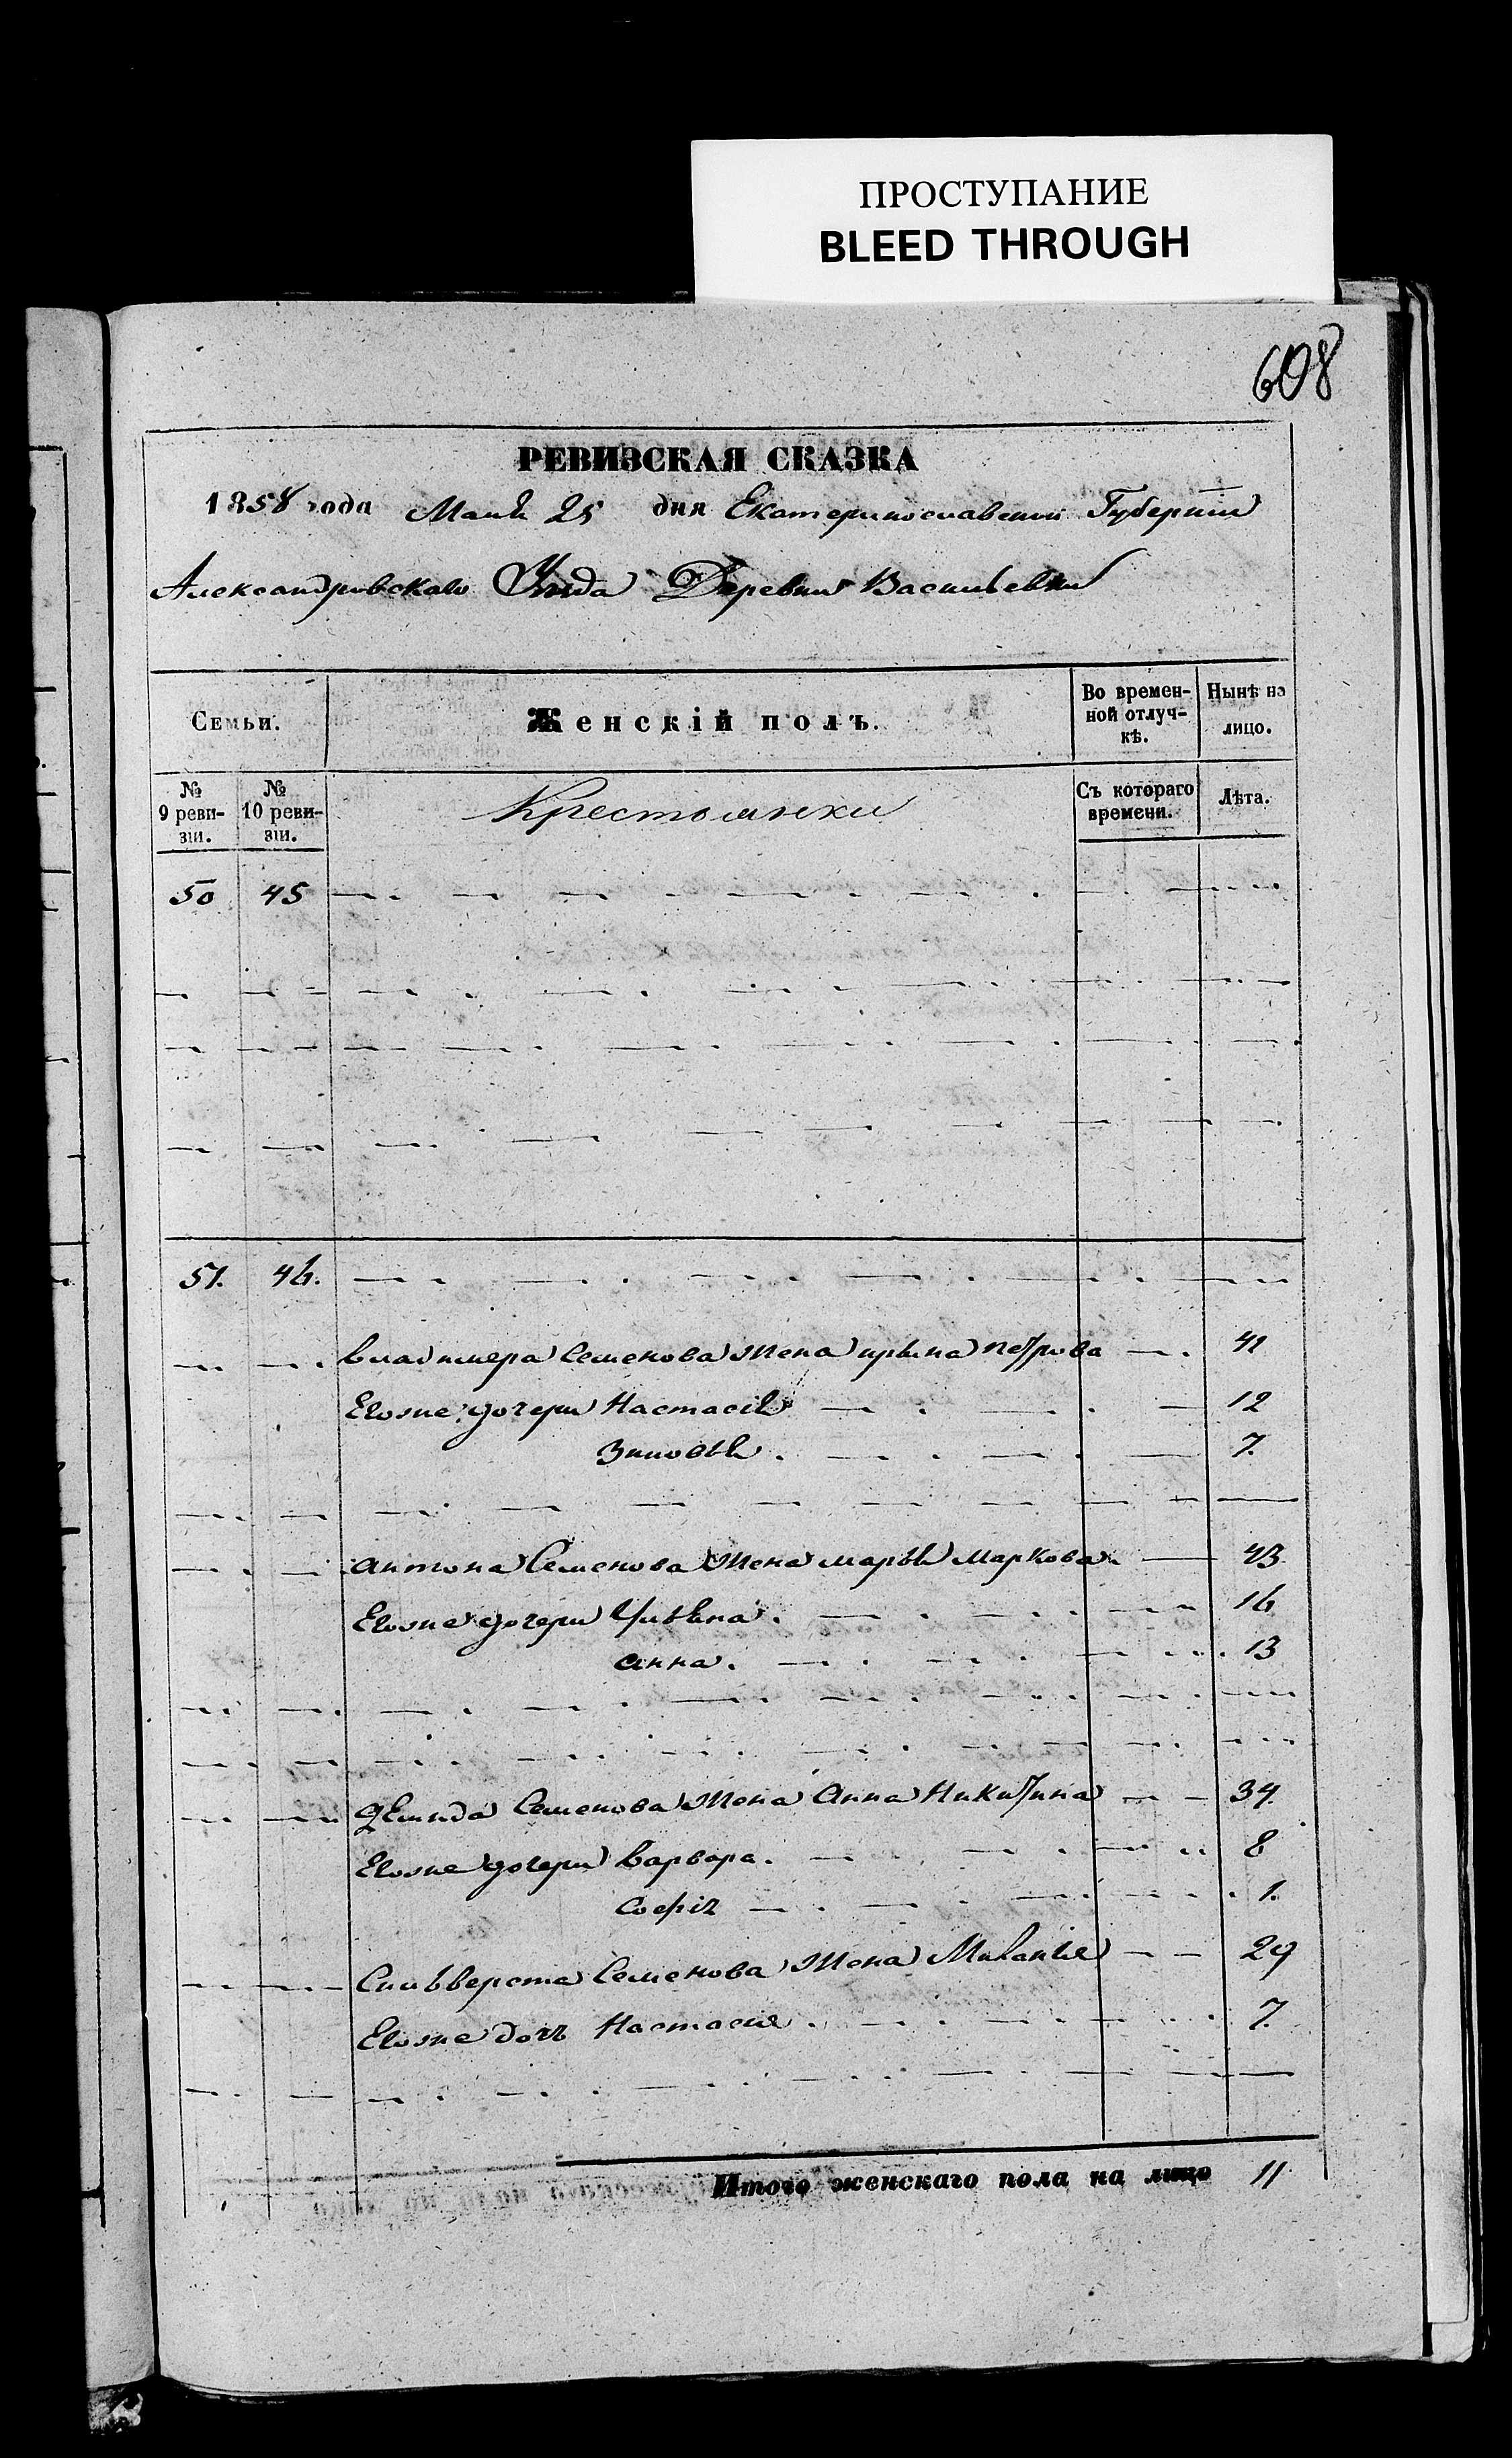 ПРОСТУПАНИЕ
BLEED THROUGH
608
РЕВИЗСКАЯ СКАЗКА
1858 года Маия 25 дня Екатеринославской Губернии
Александровскаго Уезда Деревни Васильевки
Семьи. Женскій полъ. Во временной отлучкѣ. Нынѣ на лицо.
№ 9 ревизіи. № 10 ревизіи. Крестьянки Съ котораго времени. Лѣта.
50 45
51. 46.
Владимера Семенова жена Ирына Петрова 41
Егоже дочери Настасія 12
Зиновья 7.
Антона Семенова жена Марья Маркова 43
Егоже дочери 16
Анна. 13
Демида Семенова жена Анна Никитина 34.
Егоже дочери Варвара. 8
Софія 1.
Сильверста Семенова жена 29
Егоже дочь Настасия 7.
Итого женскаго пола на лицо 11